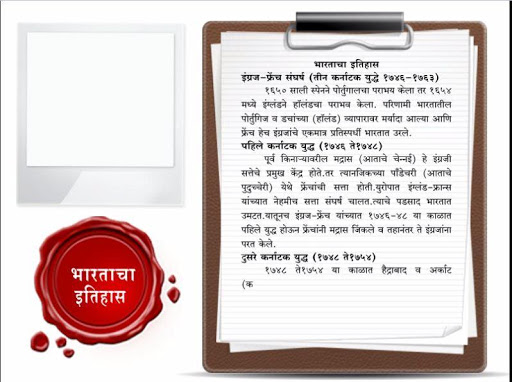 भारताचा इतिहास
इंग्रज-फ्रेंच संघर्ष (तीन कर्नाटक युद्धे १७४६-१७६३)
१६५० साली स्पेनने पोर्तुगालचा पराभव केला तर १६५४
मध्ये इंग्लंडने हॉलंडचा पराभव केला. परिणामी भारतातील
पोर्तुगिज व डचांच्या (हॉलंड) व्यापारावर मर्यादा आल्या आणि
फ्रेंच हेच इंग्रजांचे एकमात्र प्रतिस्पर्धी भारतात उरले.
पहिले कर्नाटक युद्ध (१७४६ ते१७४८)
पूर्व किनाऱ्यावरील मद्रास (आताचे चेन्नई) हे इंग्रजी
सत्तेचे प्रमुख केंद्र होते.तर त्यानजिकच्या पाँडेचरी (आताचे
पुदुच्चेरी) येथे फ्रेंचांची सत्ता होती.युरोपात इंग्लंड-फ्रान्स
यांच्यात नेहमीच सत्ता संघर्ष चालत.त्याचे पडसाद भारतात
उमटत.यातूनच इंग्रज-फ्रेंच यांच्यात १७४६-४८ या काळात
पहिले युद्ध होऊन फ्रेंचांनी मद्रास जिंकले व तहानंतर ते इंग्रजांना
परत केले.
दुसरे कर्नाटक युद्ध (१७४८ ते१७५४)
१७४८ ते१७५४ या काळात हैद्राबाद व अर्काट
(क
भारताचा
इतिहास